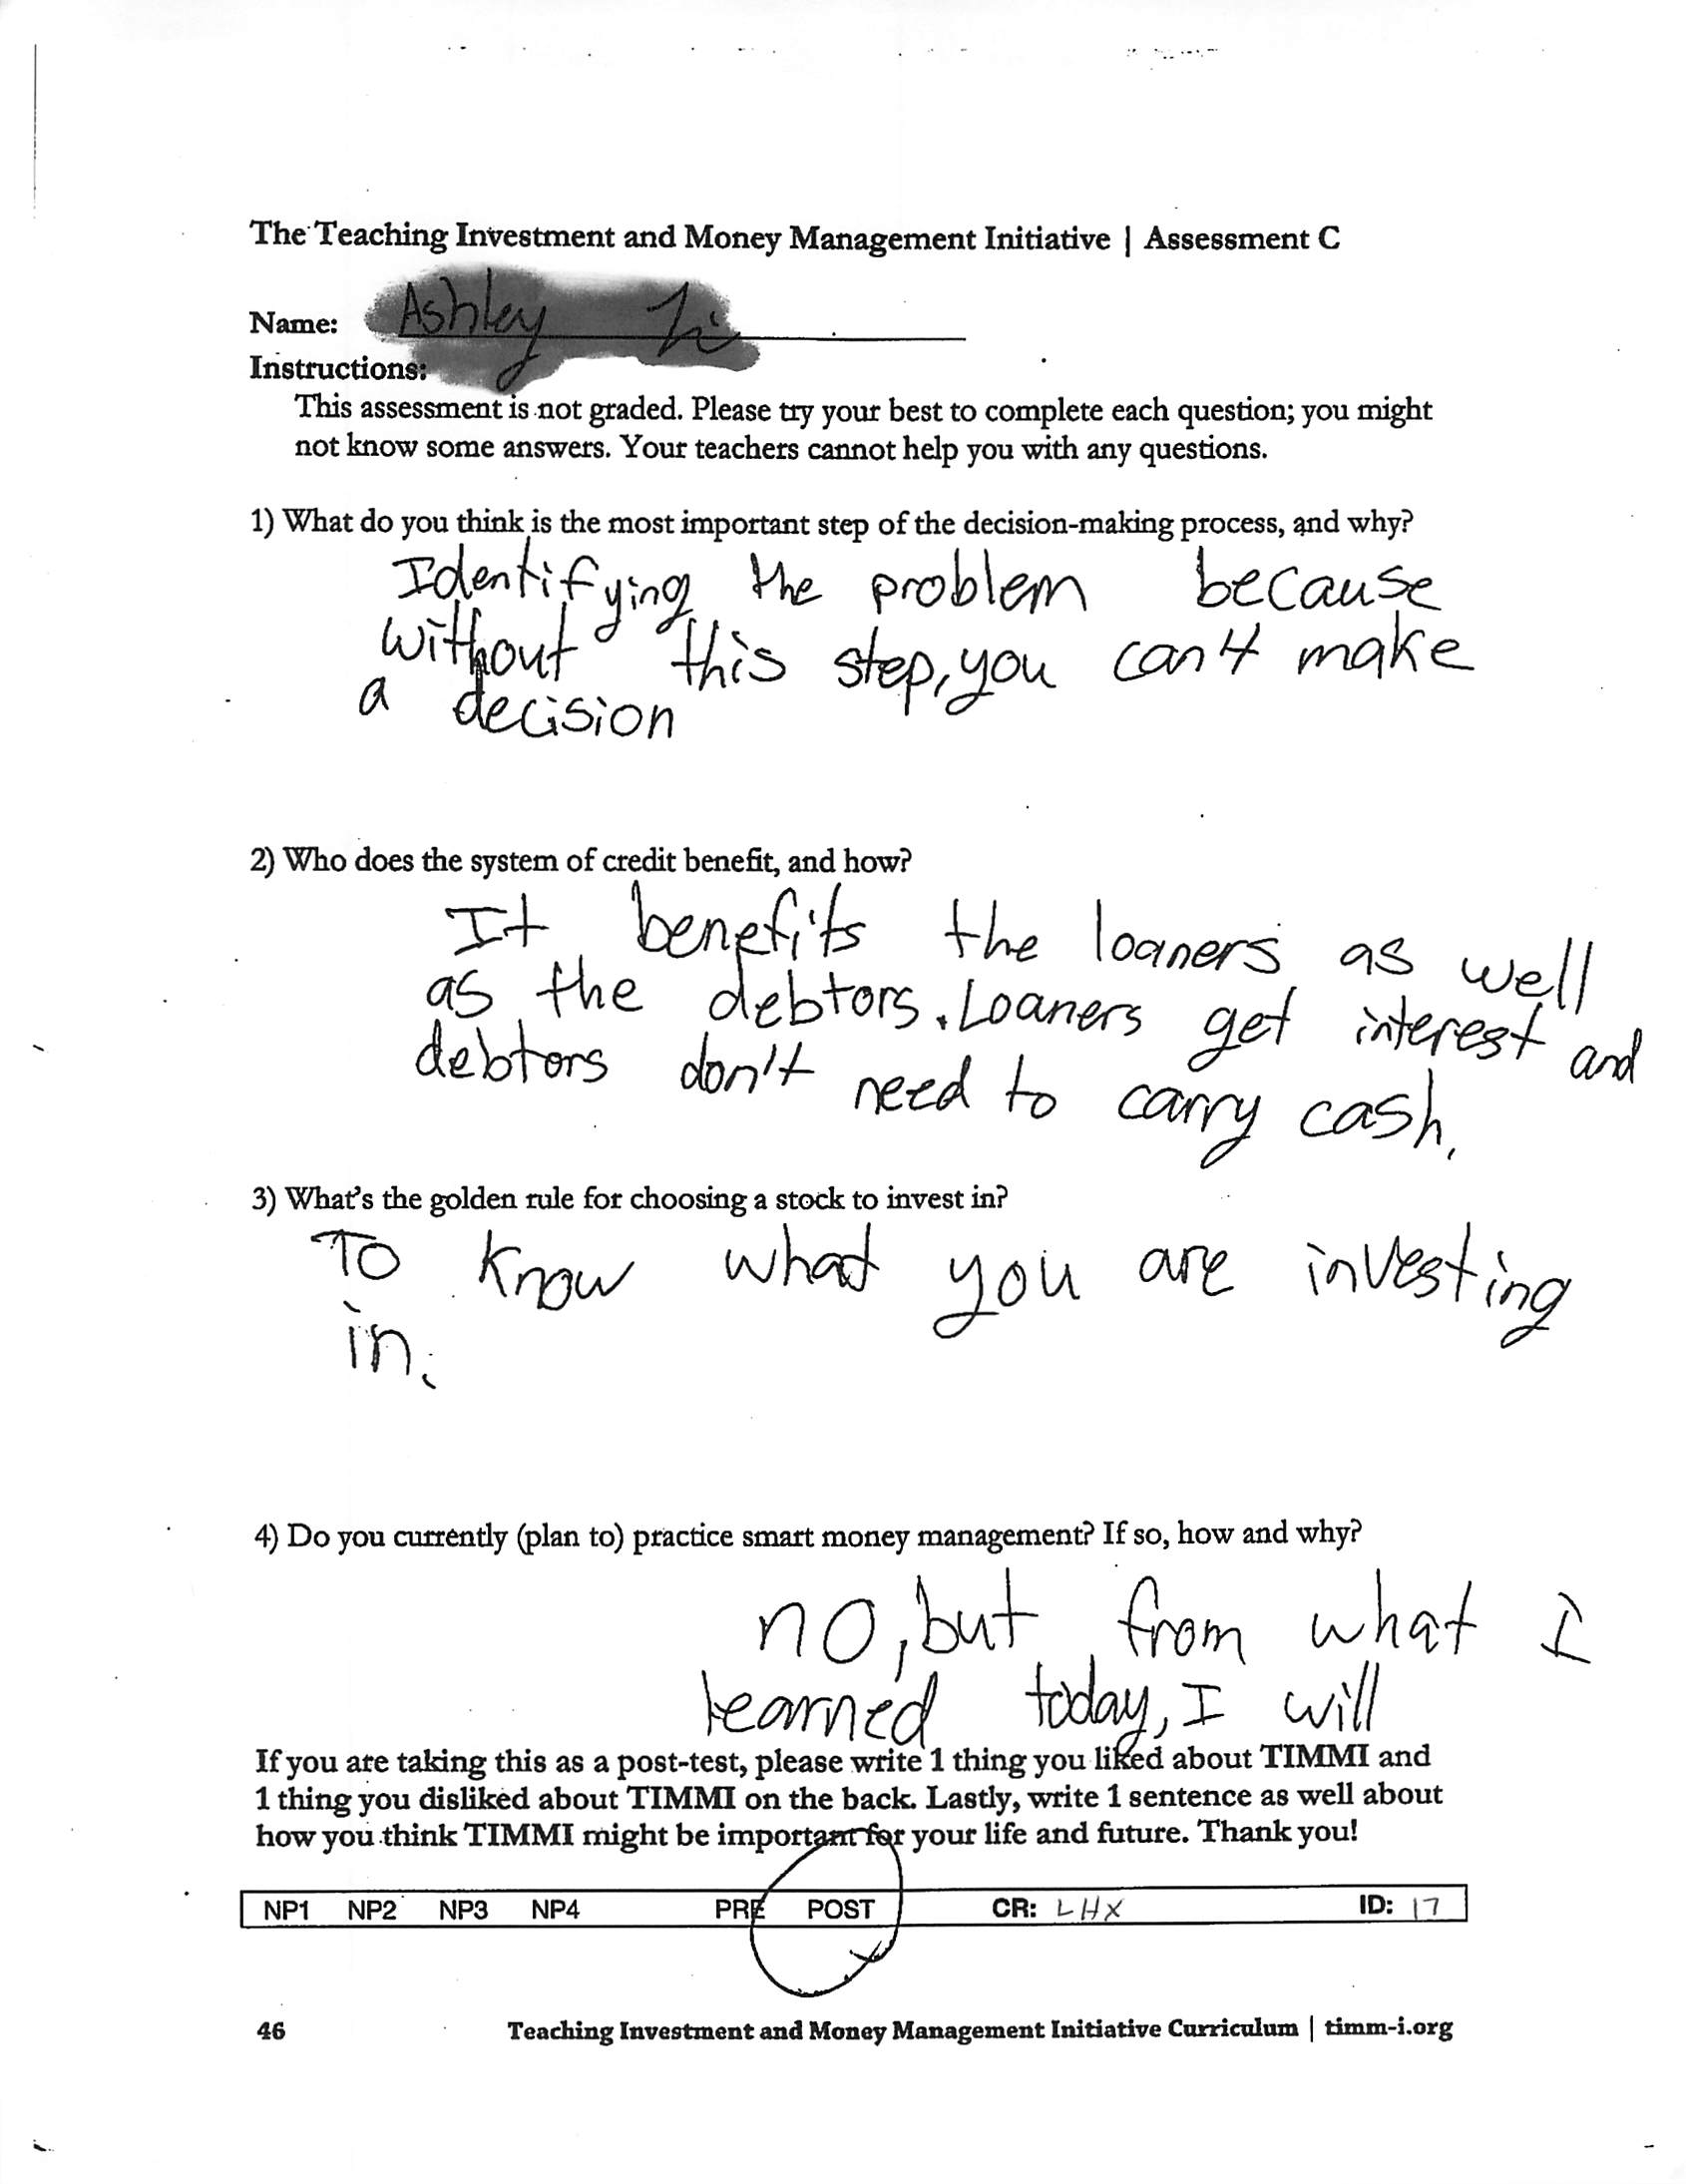 The Teaching Investment and Money Management Initiative | Assessment C
Name: Ashley
Instructions:
This assessment is not graded. Please try your best to complete each question; you might
not know some answers. Your teachers cannot help you with any questions.
1) What do you think is the most important step of the decision-making process, and why?
Identifying the problem because
without this step, you can't make
a decision
2) Who does the system of credit benefit, and how?
It benefits the loaners as well
as the debtors. Loaners get interest and
debtors don't need to carry cash.
3) What's the golden rule for choosing a stock to invest in?
To know what you are investing
in.
4) Do you currently (plan to) practice smart money management? If so, how and why?
no, but from what I
learned today, I will
If you are taking this as a post-test, please write 1 thing you liked about TIMMI and
1 thing you disliked about TIMMI on the back. Lastly, write 1 sentence as well about
how you think TIMMI might be important for your life and future. Thank you!
NP1 NP2 NP3 NP4 PRE POST CR: LHX ID: 17
46 Teaching Investment and Money Management Initiative Curriculum | timm-i.org